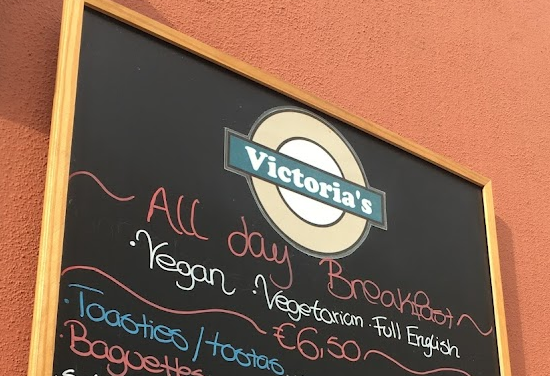 Victoria's
~ All day Breakfast ~
· Vegan · Vegetarian · Full English
~ €6,50 ~
· Toasties / tostas
· Baguettes